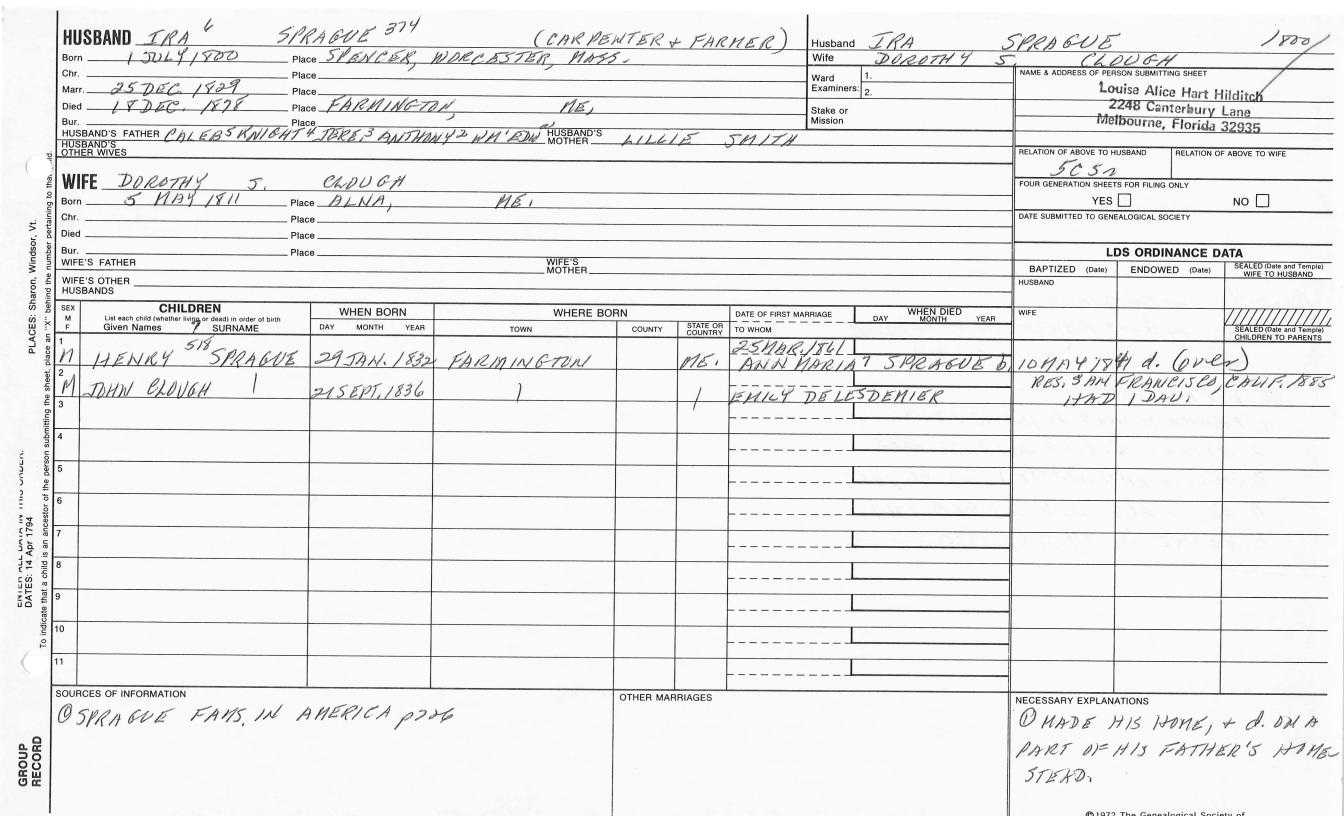 HUSBAND IRA 6 SPRAGUE 374 (CARPENTER & FARMER)
Born 1 JULY 1800 Place SPENCER, WORCESTER, MASS.
Chr. Place
Marr. 25 DEC. 1829 Place
Died 18 DEC. 1878 Place FARMINGTON, ME,
Bur. Place
HUSBAND'S FATHER CALEB 5 KNIGHT 4 JERE. 3 ANTHONY 2 WM 1 EDW HUSBAND'S MOTHER LILLIE SMITH
HUSBAND'S OTHER WIVES
Husband IRA SPRAGUE 1800
Wife DOROTHY S. CLOUGH
Ward Examiners: 1.
2.
Stake or Mission
NAME & ADDRESS OF PERSON SUBMITTING SHEET
Louise Alice Hart Hilditch
2248 Canterbury Lane
Melbourne, Florida 32935
RELATION OF ABOVE TO HUSBAND RELATION OF ABOVE TO WIFE
5C5r
FOUR GENERATION SHEETS FOR FILING ONLY
YES NO
DATE SUBMITTED TO GENEALOGICAL SOCIETY
WIFE DOROTHY S. CLOUGH
Born 5 MAY 1811 Place ALNA, ME.
Chr. Place
Died Place
Bur. Place
WIFE'S FATHER WIFE'S MOTHER
WIFE'S OTHER HUSBANDS
LDS ORDINANCE DATA
BAPTIZED (Date) ENDOWED (Date) SEALED (Date and Temple) WIFE TO HUSBAND
HUSBAND
WIFE
SEALED (Date and Temple) CHILDREN TO PARENTS
SEX M F
CHILDREN
List each child (whether living or dead) in order of birth
Given Names 7 SURNAME
WHEN BORN
DAY MONTH YEAR
WHERE BORN
TOWN COUNTY STATE OR COUNTRY
DATE OF FIRST MARRIAGE
TO WHOM
WHEN DIED
DAY MONTH YEAR
1 M HENRY 518 SPRAGUE 29 JAN. 1832 FARMINGTON ME. 25 MAR. 1861
ANN MARIA 7 SPRAGUE b. 10 MAY 1841 d. (over)
2 M JOHN CLOUGH 21 SEPT. 1836 EMILY DE LESDEMIER RES. SAN FRANCISCO, CALIF. 1885
HAD 1 DAU.
3
4
5
6
7
8
9
10
11
SOURCES OF INFORMATION
① SPRAGUE FAMS. IN AMERICA p226
OTHER MARRIAGES
NECESSARY EXPLANATIONS
① MADE HIS HOME, & d. ON A
PART OF HIS FATHER'S HOME-
STEAD.
©1972 The Genealogical Society of
PLACES: Sharon, Windsor, Vt.
ENTER ALL DATA IN THIS ORDER:
DATES: 14 Apr 1794
To indicate that a child is an ancestor of the person submitting the sheet, place an "X" behind the number pertaining to that
GROUP
RECORD